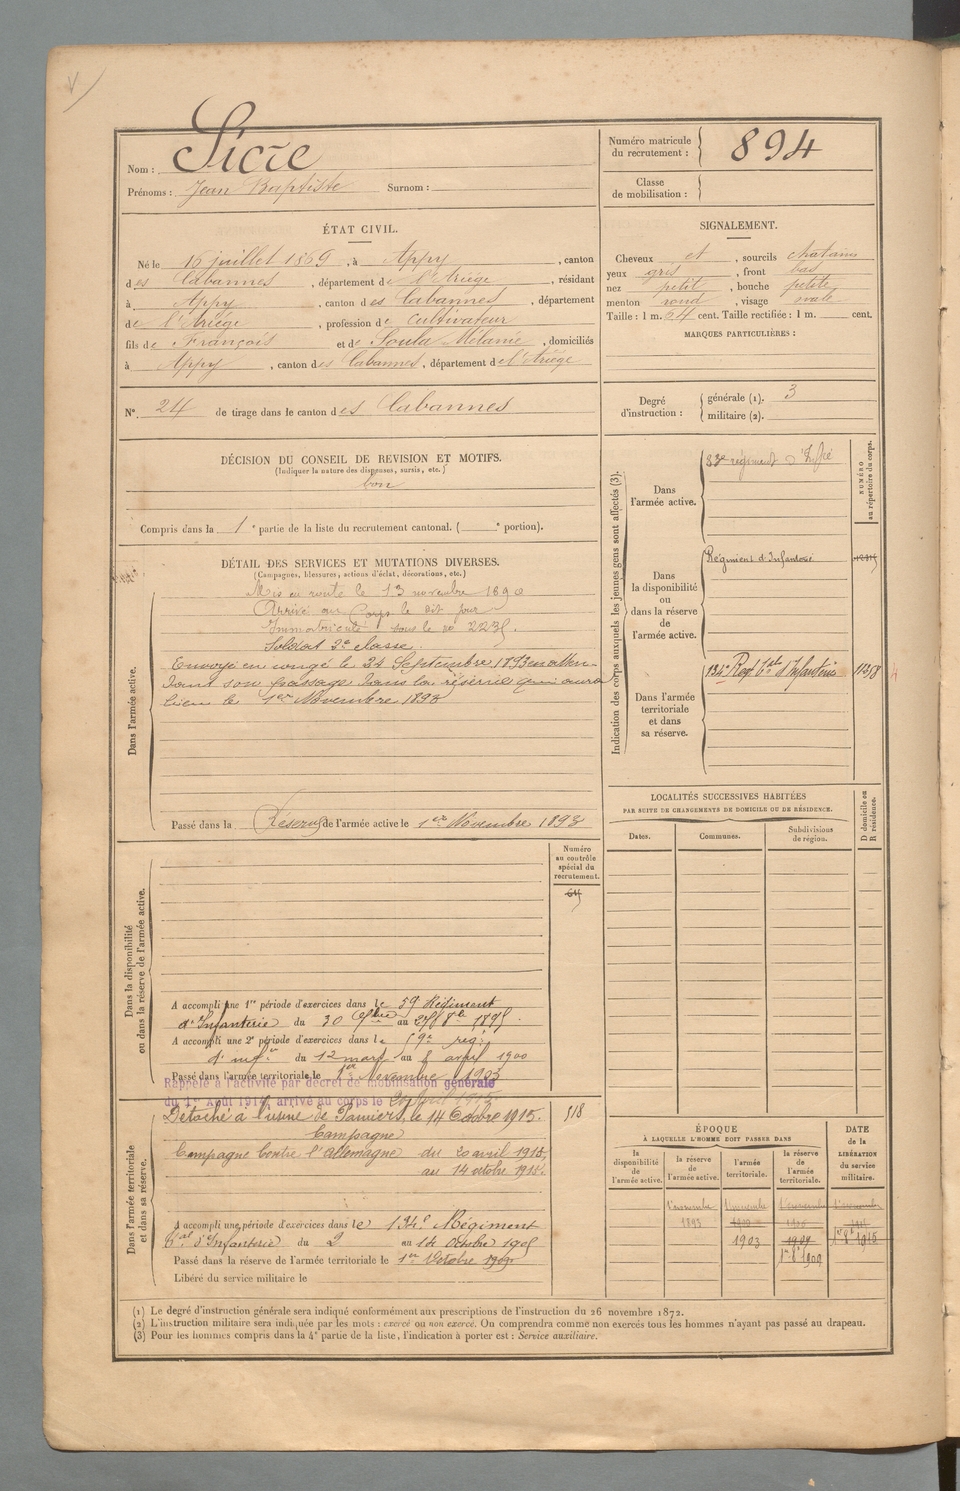 Nom : Sicre
Prénoms : Jean Baptiste Surnom :
Numéro matricule du recrutement : 894
Classe de mobilisation :
ÉTAT CIVIL.
Né le 16 juillet 1869, à Appy, canton
des Cabannes, département de l'Ariège, résidant
à Appy, canton des Cabannes, département
de l'Ariège, profession de cultivateur
fils de François et de Soula Mélanie, domiciliés
à Appy, canton des Cabannes, département de l'Ariège
SIGNALEMENT.
Cheveux et, sourcils chatains
yeux gris, front bas
nez petit, bouche petite
menton rond, visage ovale
Taille : 1 m. 64 cent. Taille rectifiée : 1 m. cent.
MARQUES PARTICULIÈRES :
N° 24 de tirage dans le canton des Cabannes
Degré d'instruction : générale (1). 3
militaire (2).
DÉCISION DU CONSEIL DE REVISION ET MOTIFS.
(Indiquer la nature des dispenses, sursis, etc.)
bon
Compris dans la 1e partie de la liste du recrutement cantonal. ( e portion).
DÉTAIL DES SERVICES ET MUTATIONS DIVERSES.
(Campagnes, blessures, actions d'éclat, décorations, etc.)
Dans l'armée active.
Mis en route le 13 novembre 1890
Arrivé au Corps le dit jour
Immatriculé sous le no
Soldat 2e classe.
Envoyé en congé le 24 Septembre 1893 en atten-
dant son passage dans la réserve qui aura
lieu le 1er Novembre 1893
Passé dans la Réserve de l'armée active le 1er Novembre 1893
Indication des corps auxquels les jeunes gens sont affectés (3).
NUMÉRO au répertoire du corps.
Dans l'armée active.
83e régiment d'Infie
Dans la disponibilité ou dans la réserve de l'armée active.
Régiment d'Infanterie
Dans l'armée territoriale et dans sa réserve.
134e Regt tal d'Infanterie
LOCALITÉS SUCCESSIVES HABITÉES
PAR SUITE DE CHANGEMENTS DE DOMICILE OU DE RÉSIDENCE.
Dates. Communes. Subdivisions de région.
D domicile ou R résidence.
Dans la disponibilité ou dans la réserve de l'armée active.
Numéro au contrôle spécial du recrutement.
A accompli une 1re période d'exercices dans le 59 Régiment
d'Infanterie du 30 7bre au 27 8bre 1895.
A accompli une 2e période d'exercices dans le 59e reg.
d'infie du 12 mars au 8 avril 1900
Passé dans l'armée territoriale le 1er Novembre 1903
Rappelé à l'activité par décret de mobilisation générale
du 1er Août 1914, arrivé au corps le 20 Avril 1915.
Dans l'armée territoriale et dans sa réserve.
Détaché à l'usine de Pamiers le 14 Octobre 1915.
518
Campagne
Campagne Contre l'Allemagne du 20 avril 1915,
au 14 octobre 1915.
A accompli une période d'exercices dans le 134e Régiment
tal d'Infanterie du 2 au 14 Octobre 1905
Passé dans la réserve de l'armée territoriale le 1er Octobre 1909.
Libéré du service militaire le
ÉPOQUE
À LAQUELLE L'HOMME DOIT PASSER DANS
DATE de la LIBÉRATION du service militaire.
la disponibilité de l'armée active.
la réserve de l'armée active.
l'armée territoriale.
la réserve de l'armée territoriale.
1 novembre 1893
1 novembre
1903
1909
1er 8bre 1909
1er 8bre 1915
(1) Le degré d'instruction générale sera indiqué conformément aux prescriptions de l'instruction du 26 novembre 1872.
(2) L'instruction militaire sera indiquée par les mots : exercé ou non exercé. On comprendra comme non exercés tous les hommes n'ayant pas passé au drapeau.
(3) Pour les hommes compris dans la 4e partie de la liste, l'indication à porter est : Service auxiliaire.